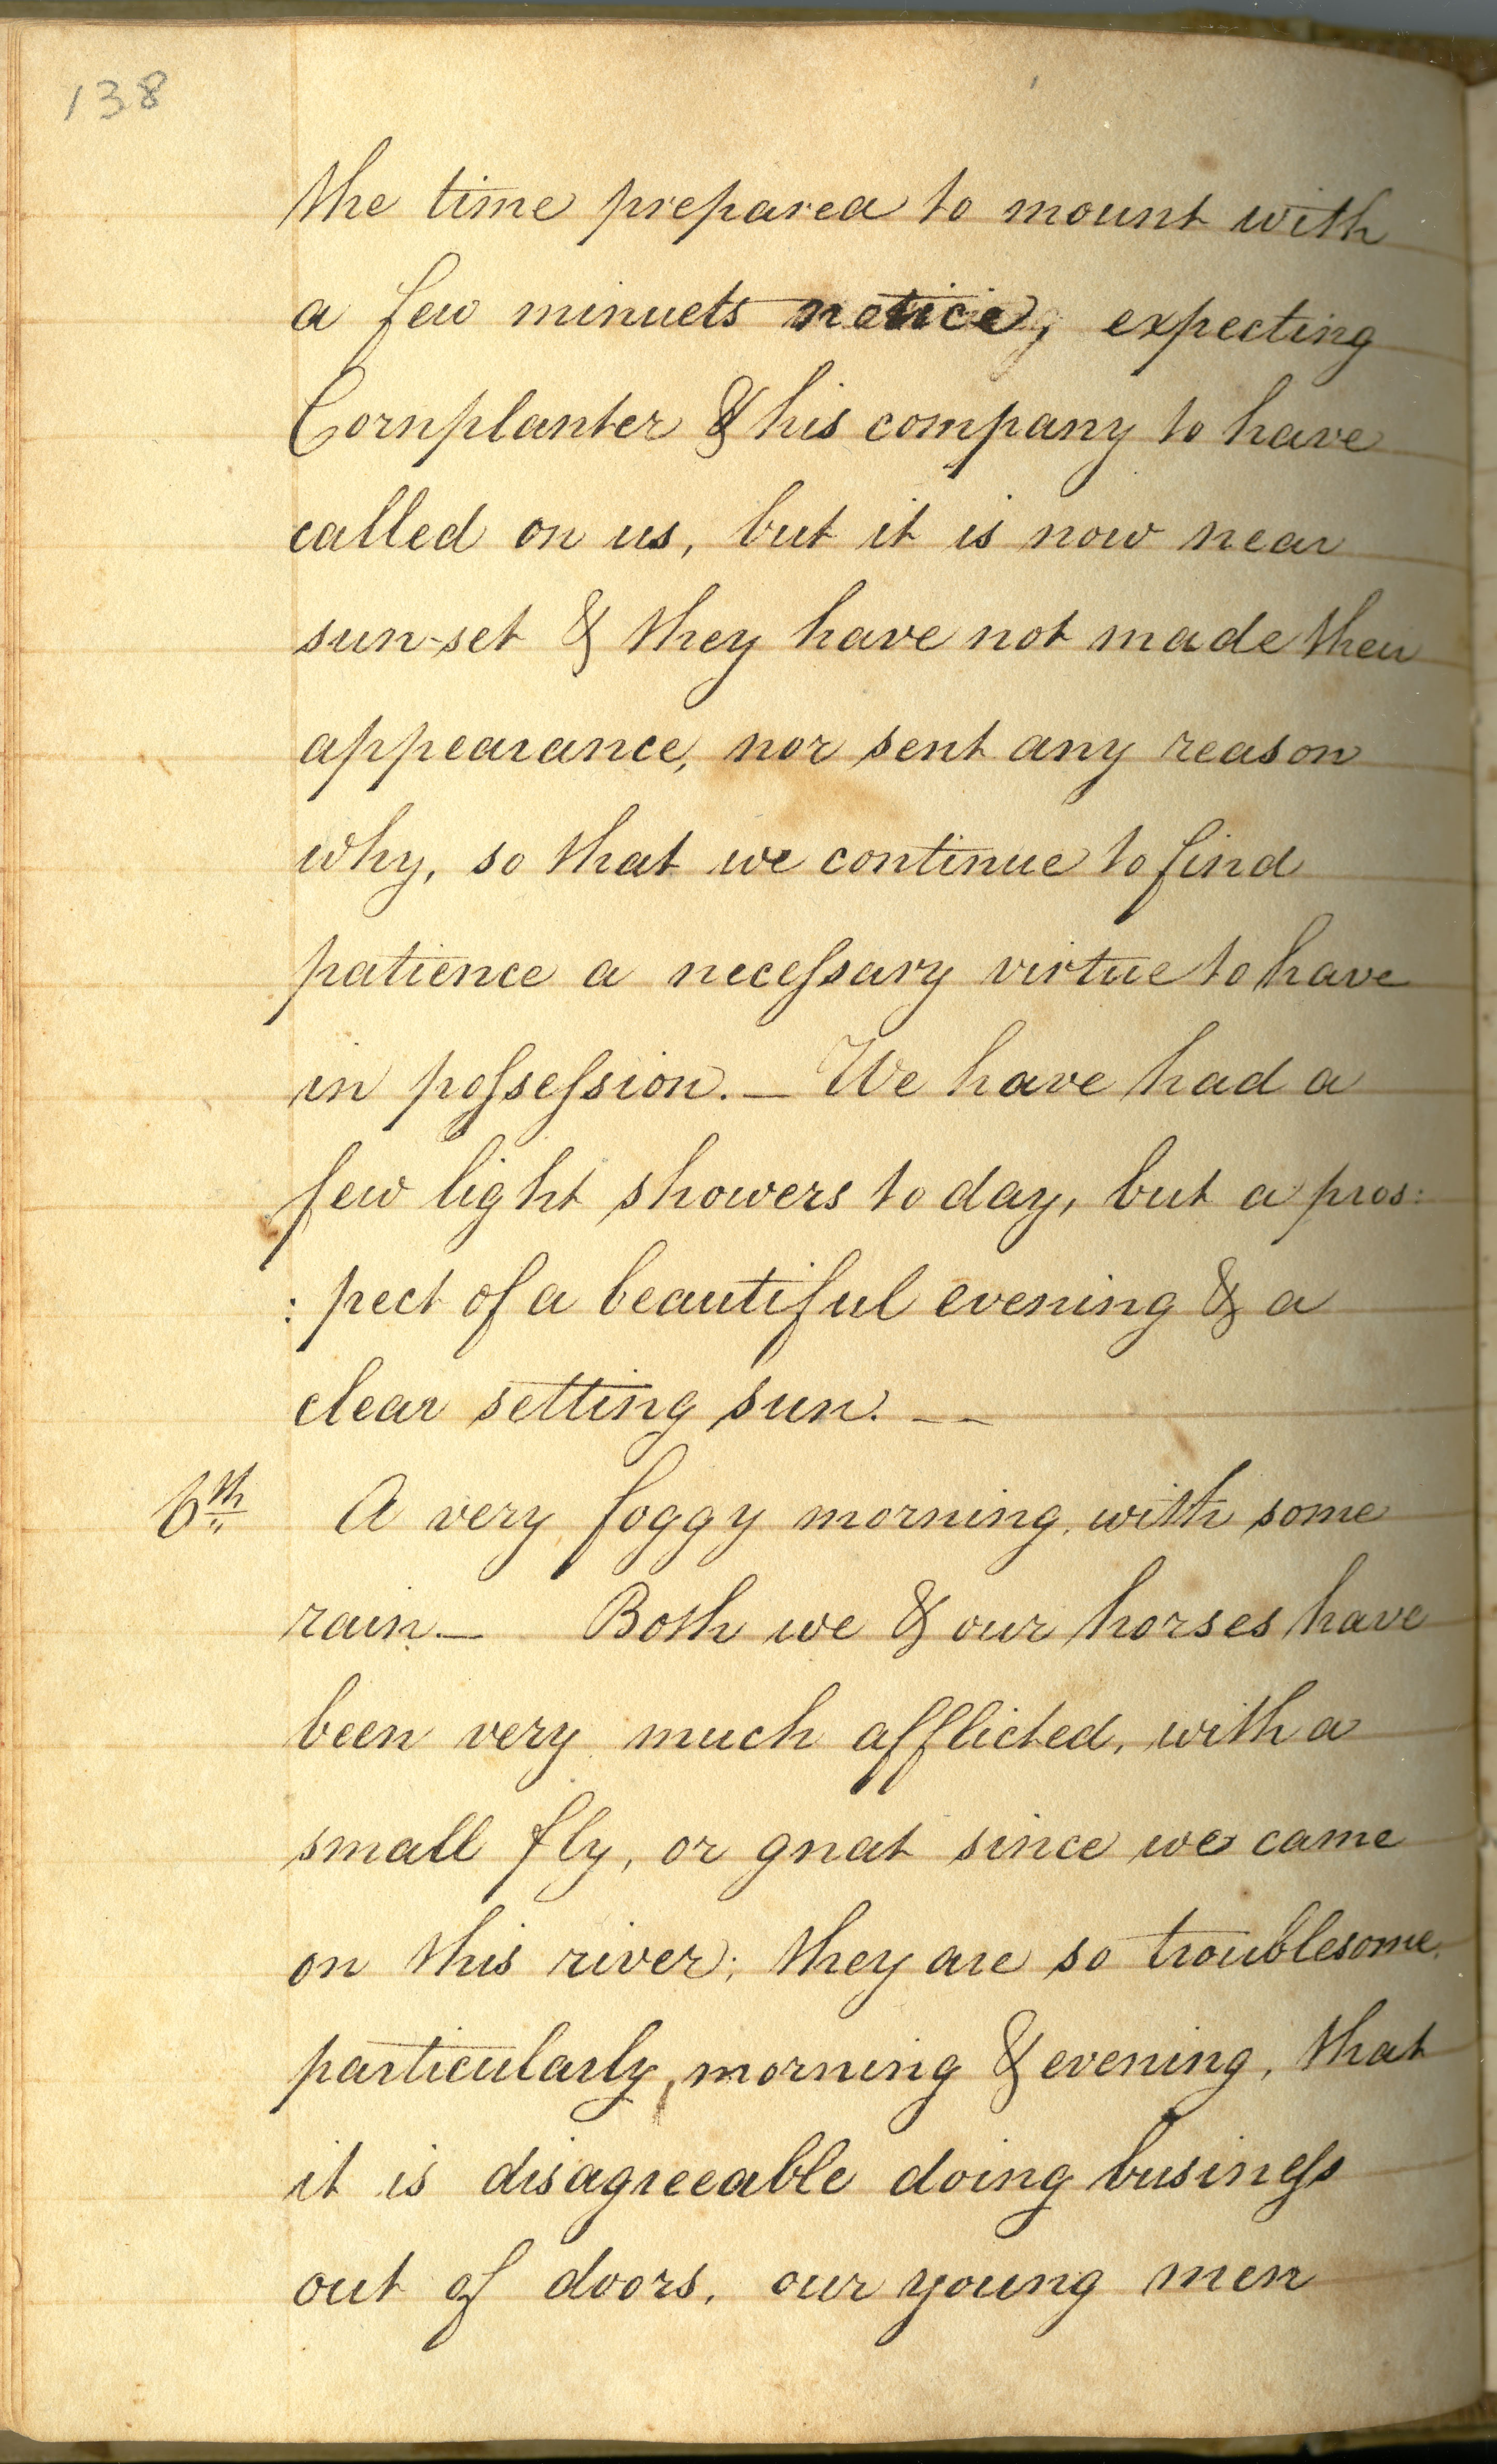 138
the time prepared to mount with
a few minuets notice, expecting
Cornplanter & his company to have
called on us, but it is now near
sun-set & they have not made their
appearance, nor sent any reason
why, so that we continue to find
patience a necessary virtue to have
in possession. — We have had a
few light showers to day, but a pros:
: pect of a beautiful evening & a
clear setting sun. — —
6th A very foggy morning, with some
rain. — Both we & our horses have
been very much afflicted, with a
small fly, or gnat since we came
on this river; they are so troublesome,
particularly, morning & evening, that
it is disagreeable doing business
out of doors, our young men